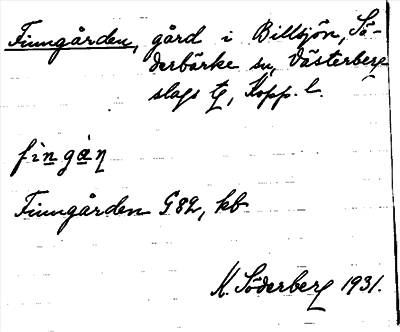 Finngården, gård i Billsjön, Sö-
derbärke sn, Västerbergs-
slags tg, Kopp. l.
fìngà̱n
Finngården G82, kb
K. Söderberg 1931.